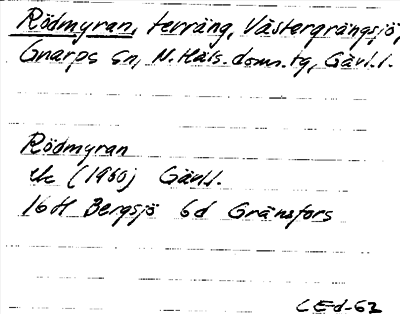 Rödmyran, terräng, Västergrängsjö,
Gnarps sn, N. Häls. doms. tg, Gävl. l.
Rödmyran
ek (1960) Gävl.l.
16H Bergsjö 6d Gränsfors
CEd-62